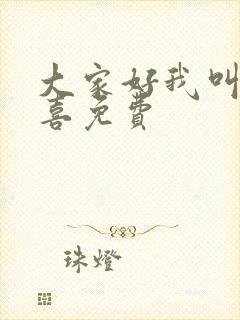 大家好我叫
喜免费
珠燈